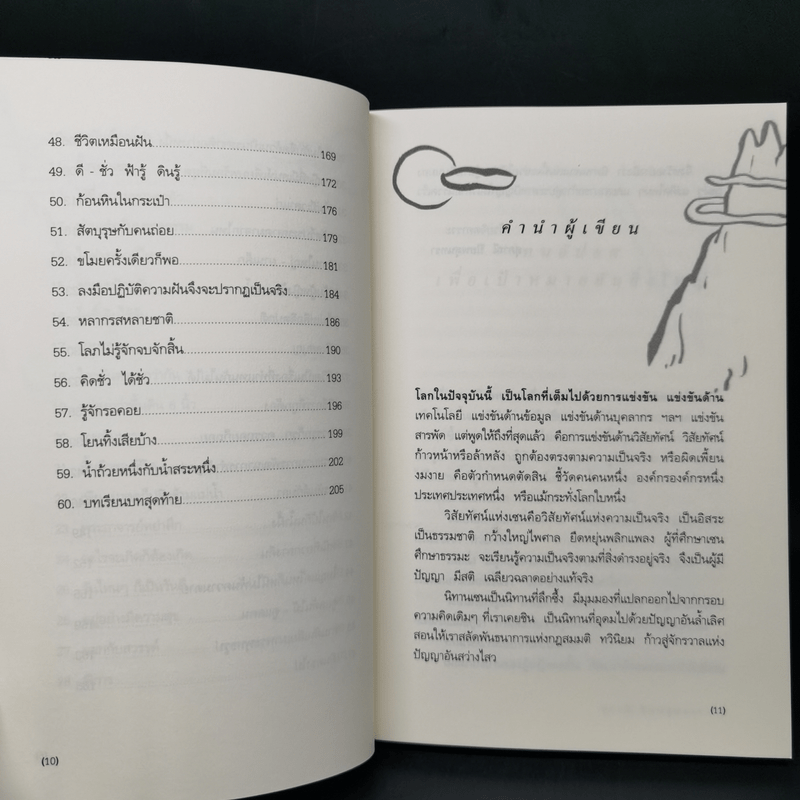 48. ชีวิตเหมือนฝัน 169
49. ดี - ชั่ว ฟ้ารู้ ดินรู้ 172
50. ก้อนหินในกระเป๋า 176
51. สัตบุรุษกับคนถ่อย 179
52. ขโมยครั้งเดียวก็พอ 181
53. ลงมือปฏิบัติความฝันจึงจะปรากฏเป็นจริง 184
54. หลากรสหลายชาติ 186
55. โลภไม่รู้จักจบจักสิ้น 190
56. คิดชั่ว ได้ชั่ว 193
57. รู้จักรอคอย 196
58. โยนทิ้งเสียบ้าง 199
59. น้ำถ้วยหนึ่งกับน้ำสระหนึ่ง 202
60. บทเรียนบทสุดท้าย 205
(10)
คำนำผู้เขียน
โลกในปัจจุบันนี้ เป็นโลกที่เต็มไปด้วยการแข่งขัน แข่งขันด้าน
เทคโนโลยี แข่งขันด้านข้อมูล แข่งขันด้านบุคลากร ฯลฯ แข่งขัน
สารพัด แต่พูดให้ถึงที่สุดแล้ว คือการแข่งขันด้านวิสัยทัศน์ วิสัยทัศน์
ก้าวหน้าหรือล้าหลัง ถูกต้องตรงตามความเป็นจริง หรือผิดเพี้ยน
งมงาย คือตัวกำหนดตัดสิน ชี้วัดคนคนหนึ่ง องค์กรองค์กรหนึ่ง
ประเทศประเทศหนึ่ง หรือแม้กระทั่งโลกใบหนึ่ง
วิสัยทัศน์แห่งเซนคือวิสัยทัศน์แห่งความเป็นจริง เป็นอิสระ
เป็นธรรมชาติ กว้างใหญ่ไพศาล ยืดหยุ่นพลิกแพลง ผู้ที่ศึกษาเซน
ศึกษาธรรมะ จะเรียนรู้ความเป็นจริงตามที่สิ่งดำรงอยู่จริง จึงเป็นผู้มี
ปัญญา มีสติ เฉลียวฉลาดอย่างแท้จริง
นิทานเซนเป็นนิทานที่ลึกซึ้ง มีมุมมองที่แปลกออกไปจากกรอบ
ความคิดเดิมๆ ที่เราเคยชิน เป็นนิทานที่อุดมไปด้วยปัญญาอันล้ำเลิศ
สอนให้เราสลัดพันธนาการแห่งกฎสมมติ ทวินิยม ก้าวสู่จักรวาลแห่ง
ปัญญาอันสว่างไสว
(11)